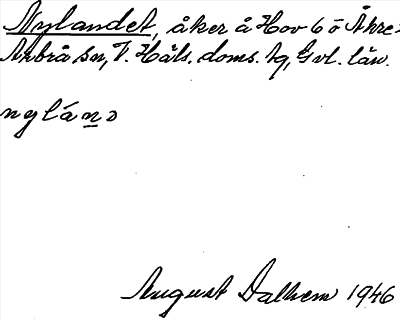 Nylandet, åker å Hov 6 ö Åkre,
Arbrå sn, V. Häls. doms. tg, Gvl. län.
nyláṉɔ
August Dalhem 1946